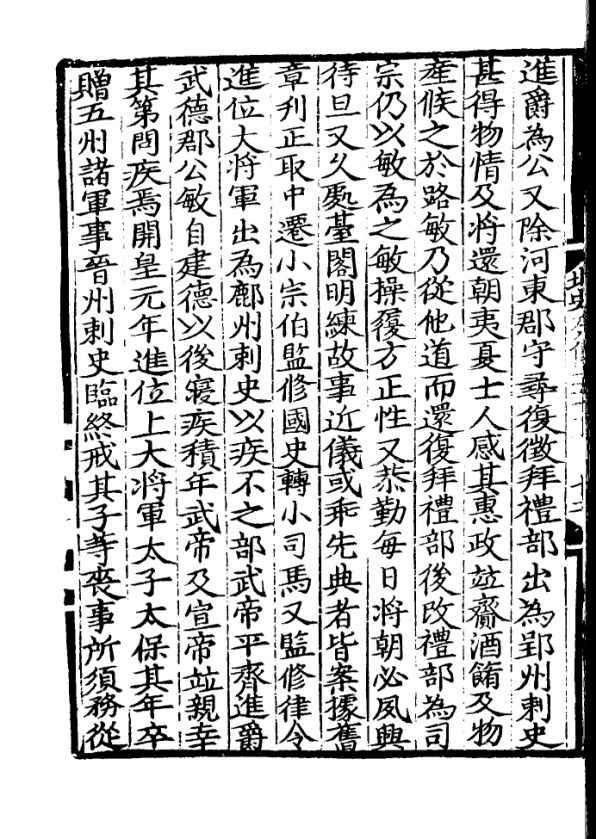 進爵為公又除河東郡守尋復徵拜禮部出為郢州刺史
甚得物情及将還朝夷夏士人感其惠政竝齎酒餚及物
產候之於路敏乃從他道而還復拜禮部後改禮部為司
宗仍以敏為之敏操履方正性又恭勤每日將朝必夙興
待旦又久處臺閣明練故事近儀或乖先典者皆案據舊
章刋正取中遷小宗伯監修國史轉小司馬又監修律令
進位大將軍出為鄜州刺史以疾不之部武帝平齊進爵
武德郡公敏自建德以後寢疾積年武帝及宣帝竝親幸
其第問疾焉開皇元年進位上大將軍太子太保其年卒
贈五州諸軍事晉州刺史臨終戒其子等喪事所須務從